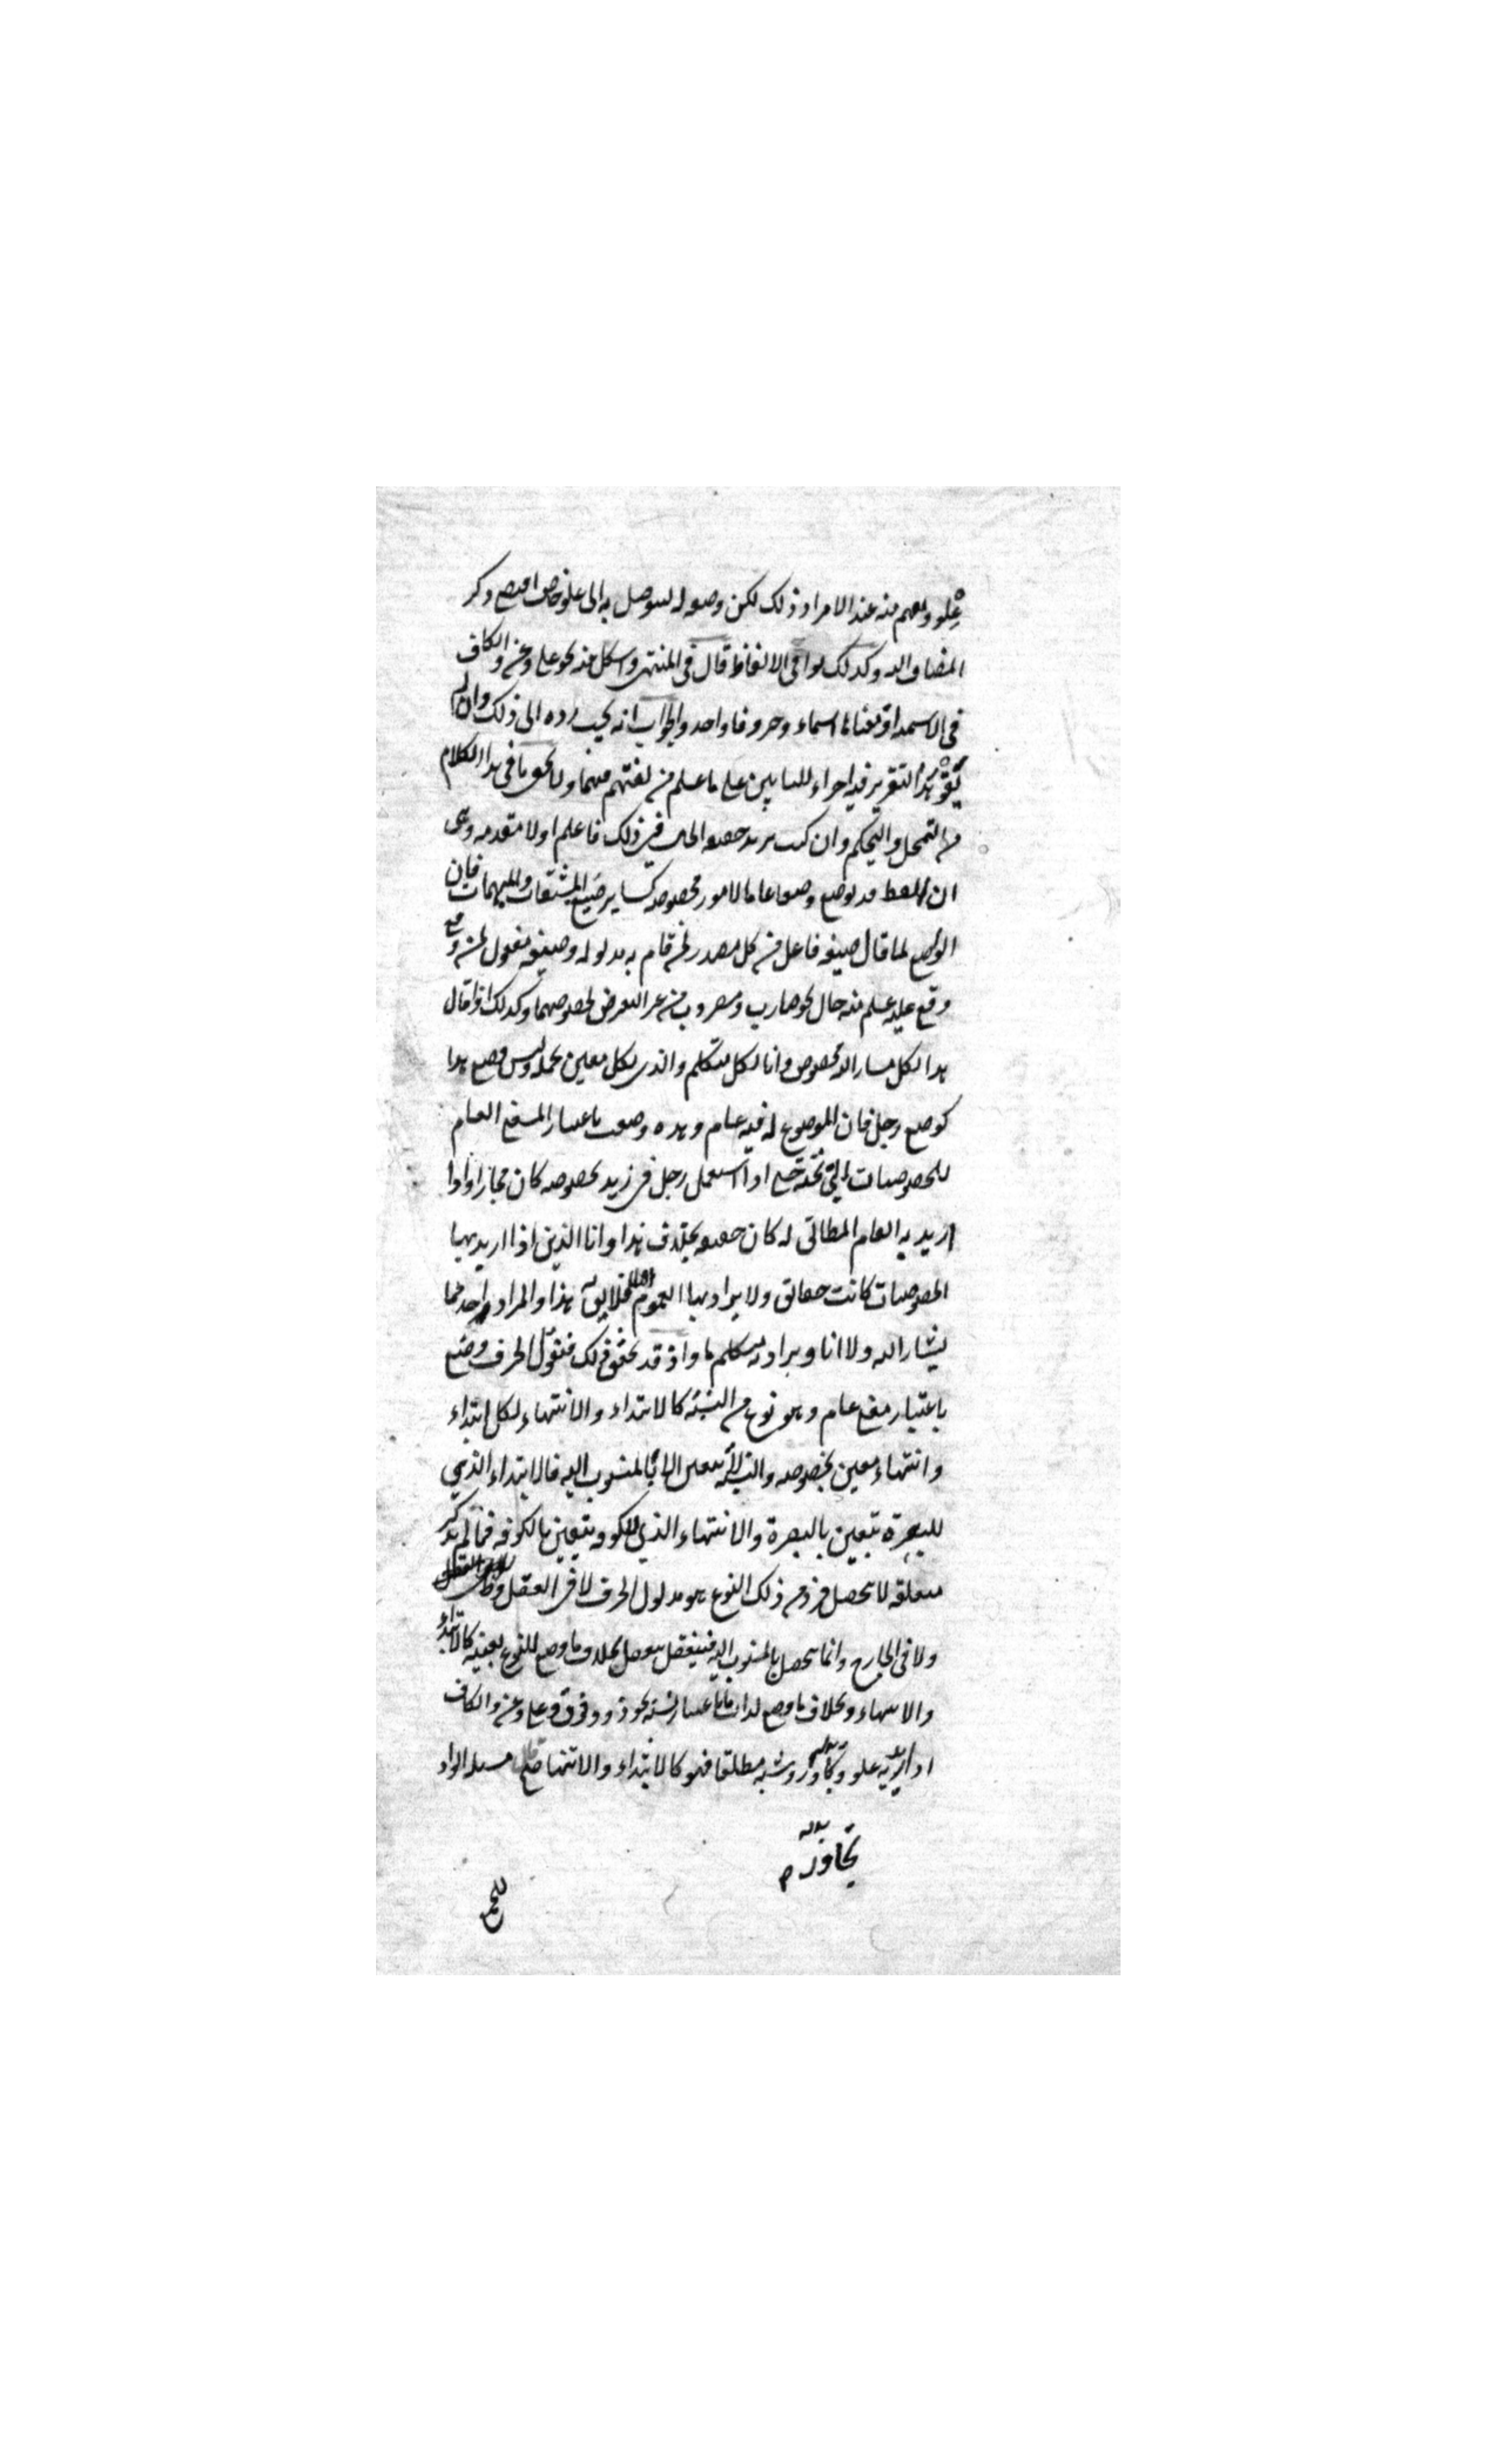 علو ويفهم منه عند الافراد ذلك لكن وضعه له ليتوصل به الى علو خاص اقتضى ذكر
المضاف اليه وكذلك بواقى الالفاظ قال فى المنتهى واشكل منه نحو على وعن والكاف
فى الاسمية اذ معناها اسماء وحروفا واحد والجواب انه يجب رده الى ذلك وان لم
يقو هذا التقرير فيه اجراء للبابين على ما علم من لغتهم فيهما ولا يخفى ما فى هذا الكلام
من التمحل والتحكم وان كنت تريد حقيقة الحال فى ذلك فاعلم اولا مقدمة وهى
ان اللفظ قد يوضع وضعا عاما لامور مخصوصة كساير صيغ المشتقات والمبهمات فان
الواضع لما قال صيغة فاعل من كل مصدر لمن قام به مدلوله وصيغة مفعول لمن
وقع عليه علم منه حال نحو ضارب ومضروب من غير التعرض لخصوصهما وكذلك اذا قال
هذا لكل مشار اليه مخصوص وانا لكل متكلم والذى لكل معين بجملة وليس وضع هذا
كوضع رجل فان الموضوع له فيه عام وهذه وضعت باعتبار المعنى العام
للخصوصيات التى تحته حتى اذا استعمل رجل فى زيد بخصوصه كان مجازا واذا
اريد به العام المطابق له كان حقيقة بخلاف هذا وانا والذى اذا اريد بها
الخصوصيات كانت حقائق ولا يراد بها العموم اصلا فلا يقال هذا والمراد واحد مما
يشار اليه ولا انا ويراد به متكلم ما واذ قد تحقق ذلك فنقول الحرف وضع
باعتبار معنى عام وهو نوع من النسبة كالابتداء والانتهاء لكل ابتداء
وانتهاء معين بخصوصه والنسبة لا تتعين الا بالمنسوب اليه فالابتداء الذى
للبصرة يتعين بالبصرة والانتهاء الذى للكوفة يتعين بالكوفة فما لم يذكر
متعلقه لا يتحصل فرد من ذلك النوع هو مدلول الحرف لا فى العقل
ولا فى الخارج وانما يتحصل بالمنسوب اليه فيتعقل بتعقله بخلاف ما وضع للنوع بعينه كالابتداء
والانتهاء وبخلاف ما وضع لذات ما باعتبار نسبة نحو ذو وفوق وعلى وعن والكاف
اذا اريد به علو وتجاوز وشبه مطلقا فهو كالابتداء والانتهاء
تجاوز